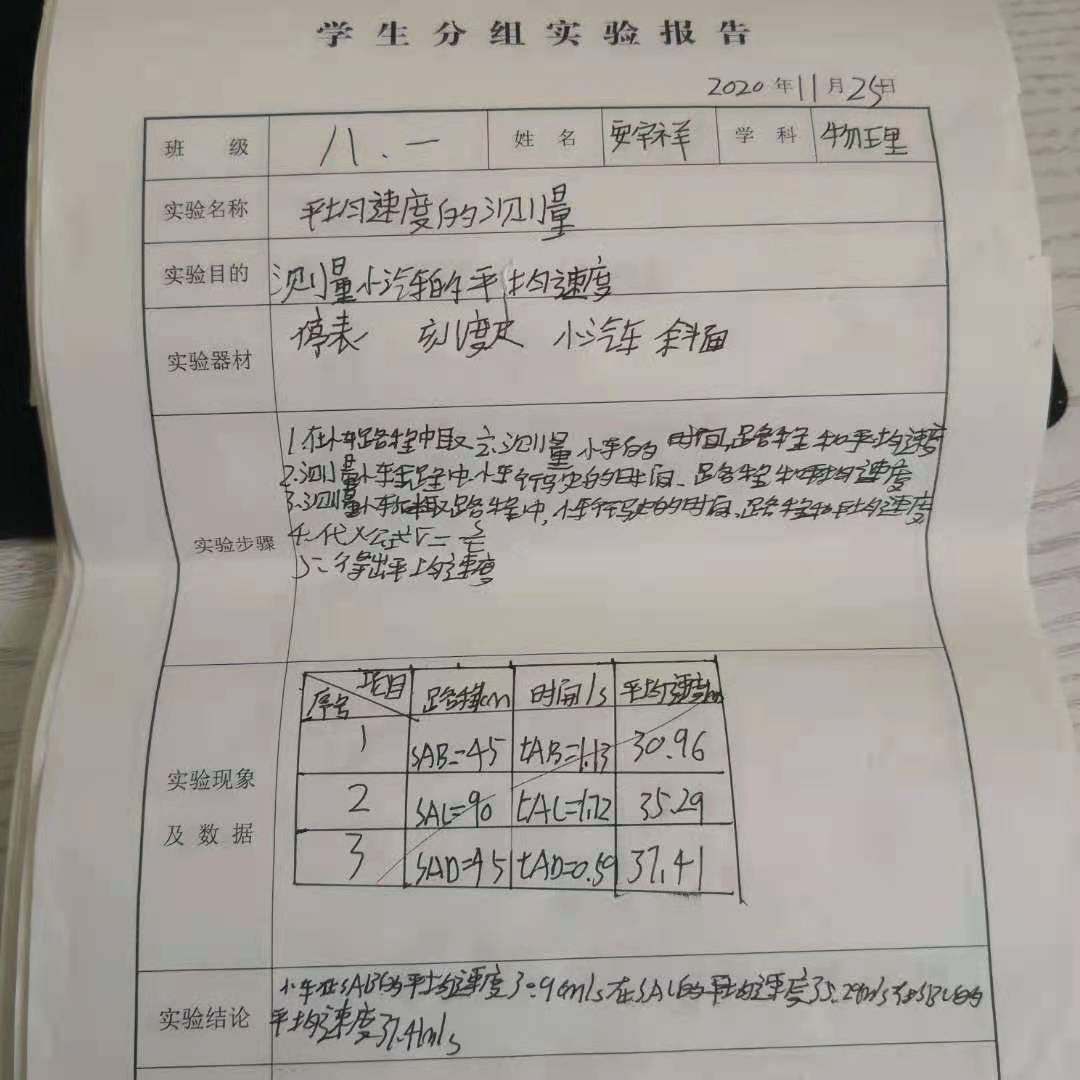 学生分组实验报告
2020年11月25日
班 级 八.一 姓名 安宇祥 学科 物理
实验名称 平均速度的测量
实验目的 测量小汽车的平均速度
实验器材 停表 刻度尺 小汽车 斜面
实验步骤
1.在 路程中取 测量小车的时间,路程和平均速度
2.测量小车 路程中小车行驶的时间、路程和平均速度
3.测量小车 路程中,小车行驶的时间、路程和平均速度
4.代入公式V=s/t
5.得出平均速度
实验现象及数据
序号 项目 路程cm 时间/s 平均速度
1 SAB=45 tAB=1.13 30.96
2 SAC=90 tAC=1.72 35.29
3 SAD=45 tAD=0.59 37.41
实验结论 小车在SAB的平均速度30.96m/s在SAC的平均速度35.29m/s在SBC的
平均速度37.41m/s